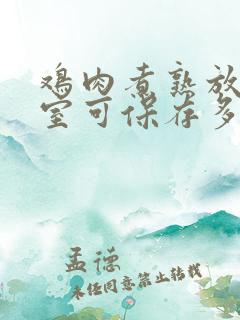 鸡肉煮熟放
室可保存多
孟德
未经同意禁止转载